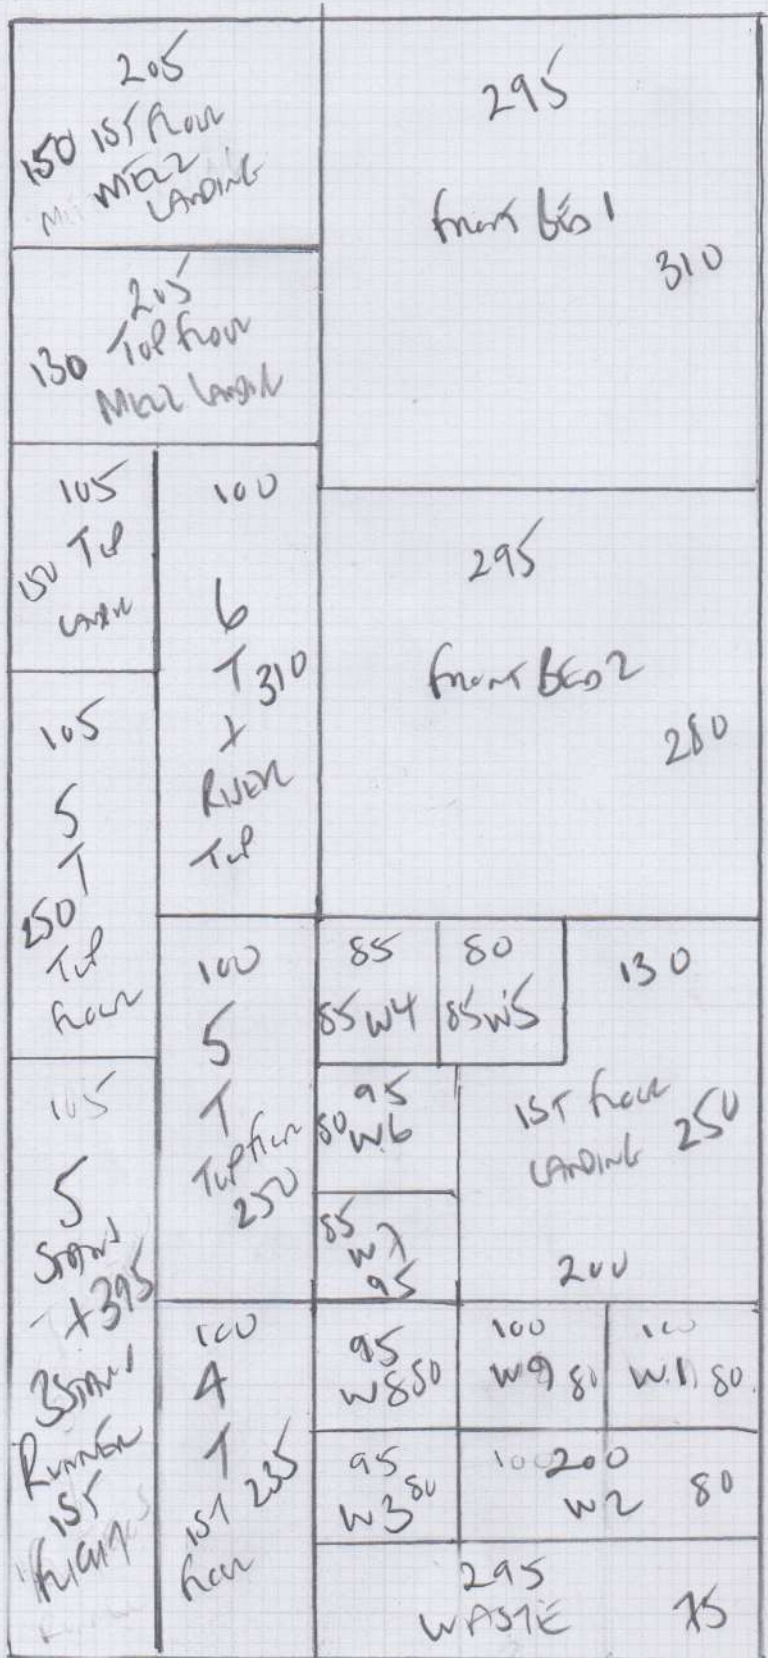 205
150 1ST FLOOR
MEZZ
LANDING
295
FRONT BED 1
310
205
130 TOP FLOOR
MEZZ LANDIN
105
150 TOP
LANDIN
100
6
T 310
+
RISER
TOP
295
FRONT BED 2
280
105
5
T
250
TOP
FLOOR
100
5
T
TOP FLOOR
250
85
85 W4
80
85 W5
130
1ST FLOOR
LANDING 250
200
95
80 W6
85
W7
95
105
5
STAIRS
+ 395
3 STAIRS
RUNNER
1ST
FLIGHT
100
4
T
1ST 235
FLOOR
95
W8 80
100
W9 80
100
W1 80
95
W3 80
100 200
W2 80
295
WASTE 75